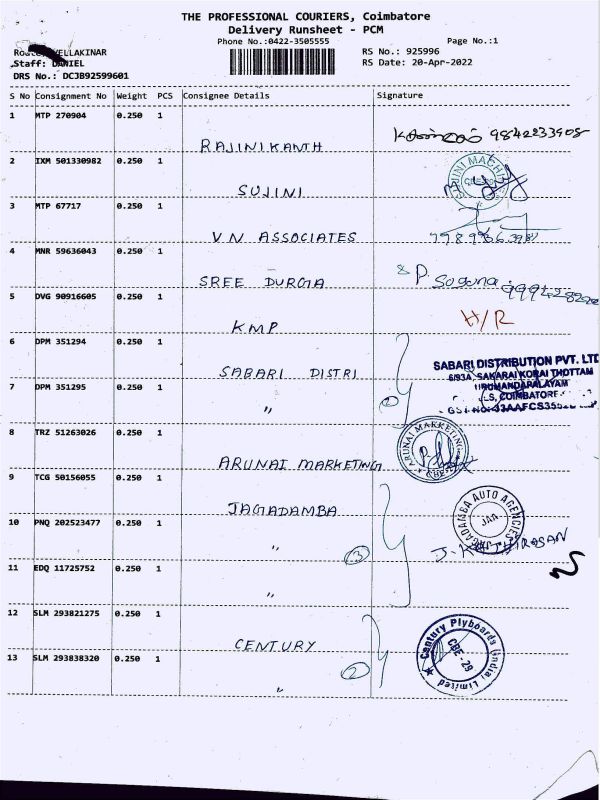 THE PROFESSIONAL COURIERS, Coimbatore
Delivery Runsheet - PCM
Phone No.:0422-3505555 Page No.:1
VELLAKINAR RS No.: 925996
Staff: DANIEL RS Date: 20-Apr-2022
DRS No.: DCJ3B92599601
S No Consignment No Weight PCS Consignee Details Signature
1 MTP 270904 0.250 1
RAJINIKANTH 9842233908
2 IXM 501330982 0.250 1
SUJINI
3 MTP 67717 0.250 1
VN ASSOCIATES
4 MNR 59636043 0.250 1
SREE DURGA
5 DVG 90916605 0.250 1
KMP H/R
6 DPM 351294 0.250 1
SABARI DISTRI
SABARI DISTRIBUTION PVT. LTD
6/93A, SAKARAI KORAI THOTTAM
COIMBATORE
7 DPM 351295 0.250 1
" 2
8 TRZ 51263026 0.250 1
ARUNAI MARKETING
ARUNAI MARKETING CBE
9 TCG 50156055 0.250 1
JAGADAMBA
JAGADAMBA AUTO AGENCIES
10 PNQ 202523477 0.250 1
" 3
J. KATHIRESAN
11 EDQ 11725752 0.250 1
"
12 SLM 293821275 0.250 1
CENTURY
Century Plyboards (India) Limited
CBE - 29
13 SLM 293838320 0.250 1
" 2